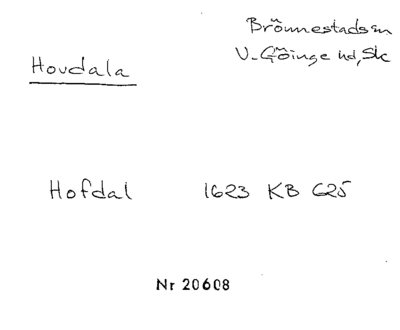 Brönnestads sn
V. Göinge hd, Sk
Hovdala
Hofdal 1623 KB 625
Nr 20608